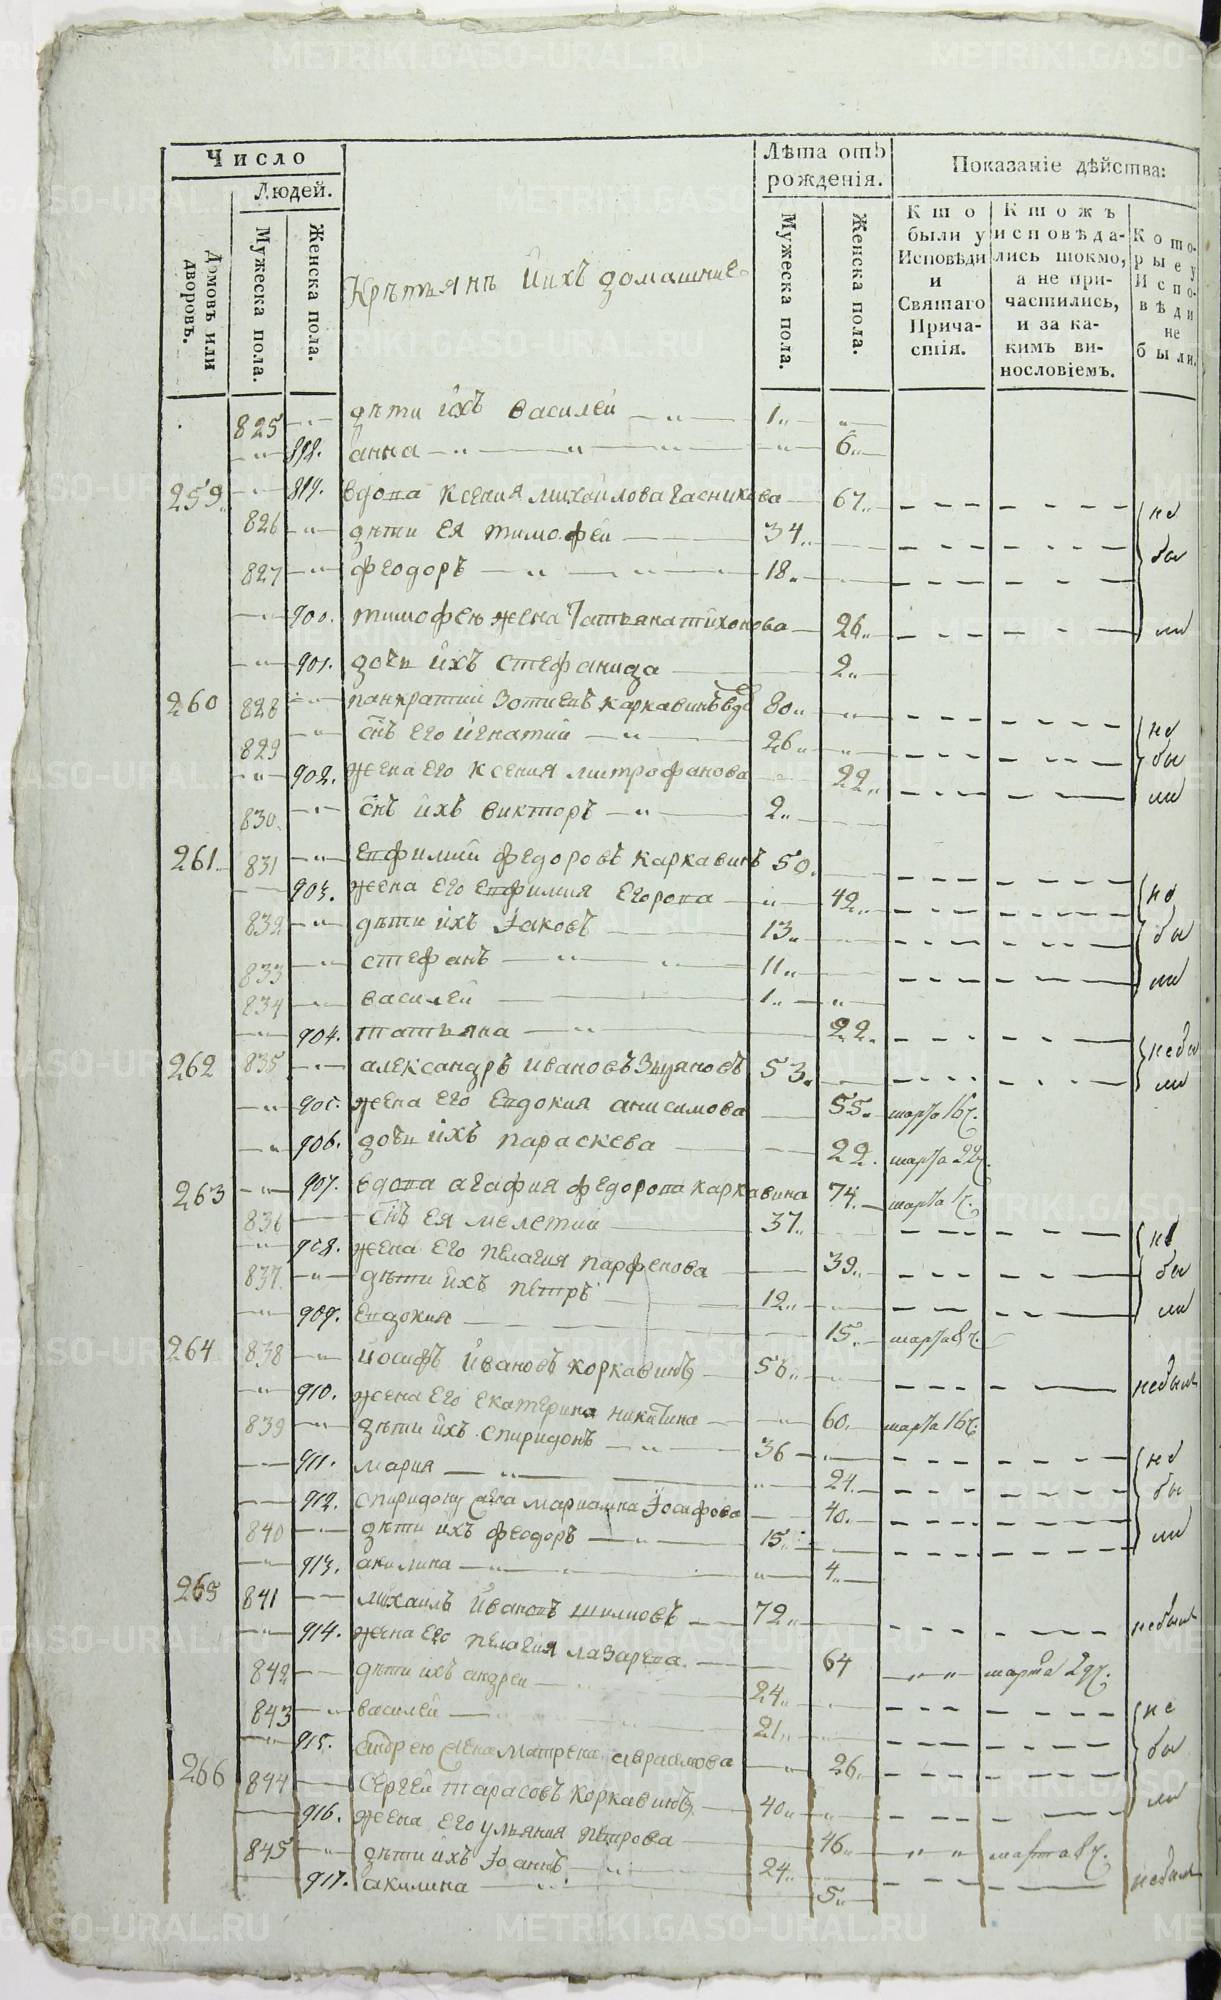 Число
Людей.
Домовъ или дворовъ.
Мужеска пола.
Женска пола.
Лѣта отъ рожденія.
Мужеска пола.
Женска пола.
Показаніе дѣйства:
Кто были у Исповѣди и Святаго Причастія.
Ктожъ исповѣдались токмо, а не причастились, и за какимъ винословіемъ.
Которые у Исповѣди не были.
Крѣтьянѣ ииихъ домашние
825 дѣти ихъ василеи 1
898. анна 6
259 899. вдова ксения михаилова Часникова 67 не
826 дѣти ея тимофеи 34 бы
827 феодоръ 18
900. тимофею жена Татьяна тихонова 26 ли
901. дочь ихъ стефанида 2
260 828 панкратии Зотиевъ каркавинъ вдо 80
829 снъ его игнатии 26 не бы
902. жена его ксения митрофанова 22 ли
830. снъ ихъ викторъ 2
261 831 евфимии федоровъ каркавинъ 50
903. жена его евфимия егорова 42 не
832 дѣти ихъ Iаковъ 13 бы
833 стефанъ 11 ли
834 василеи 1
904. татьяна 22
262 835 александръ ивановъ Зыряновъ 53 небы ли
905. жена его евдокия анисимова 55 марта 16ч.
906. дочь ихъ параскева 22 марта 22ч.
263 907. вдова агафия федорова каркавина 74 марта
836 снъ ея мелетии 37 не
908. жена его пелагия парфенова 39 бы
837. дѣти ихъ петръ 12 ли
909. евдокия 15 марта 8ч.
264 838 иосифъ ивановъ коркавинъ 56 небылъ
910. жена его екатерина никитина 60 марта 16ч.
839 дѣти ихъ спиридонъ 36 не
911. мария 24 бы
912. спиридону жена мариамна Iосифова 40 ли
840 дѣти ихъ феодоръ 15
913. акилина 4
265 841 михаилъ ивановъ шиловъ 72 небылъ
914. жена его пелагия лазарева 64 марта 29ч.
842 дѣти ихъ андреи 24 не
843 василеи 21 бы
915. андрею жена матрена авраамова 26 ли
266 844 сергеи тарасовъ коркавинъ 40
916. жена его ульяния петрова 46 марта 8ч.
845 дѣти ихъ Iоаннъ 24 небылъ
917. акилина 5
METRIKI.GASO-URAL.RU